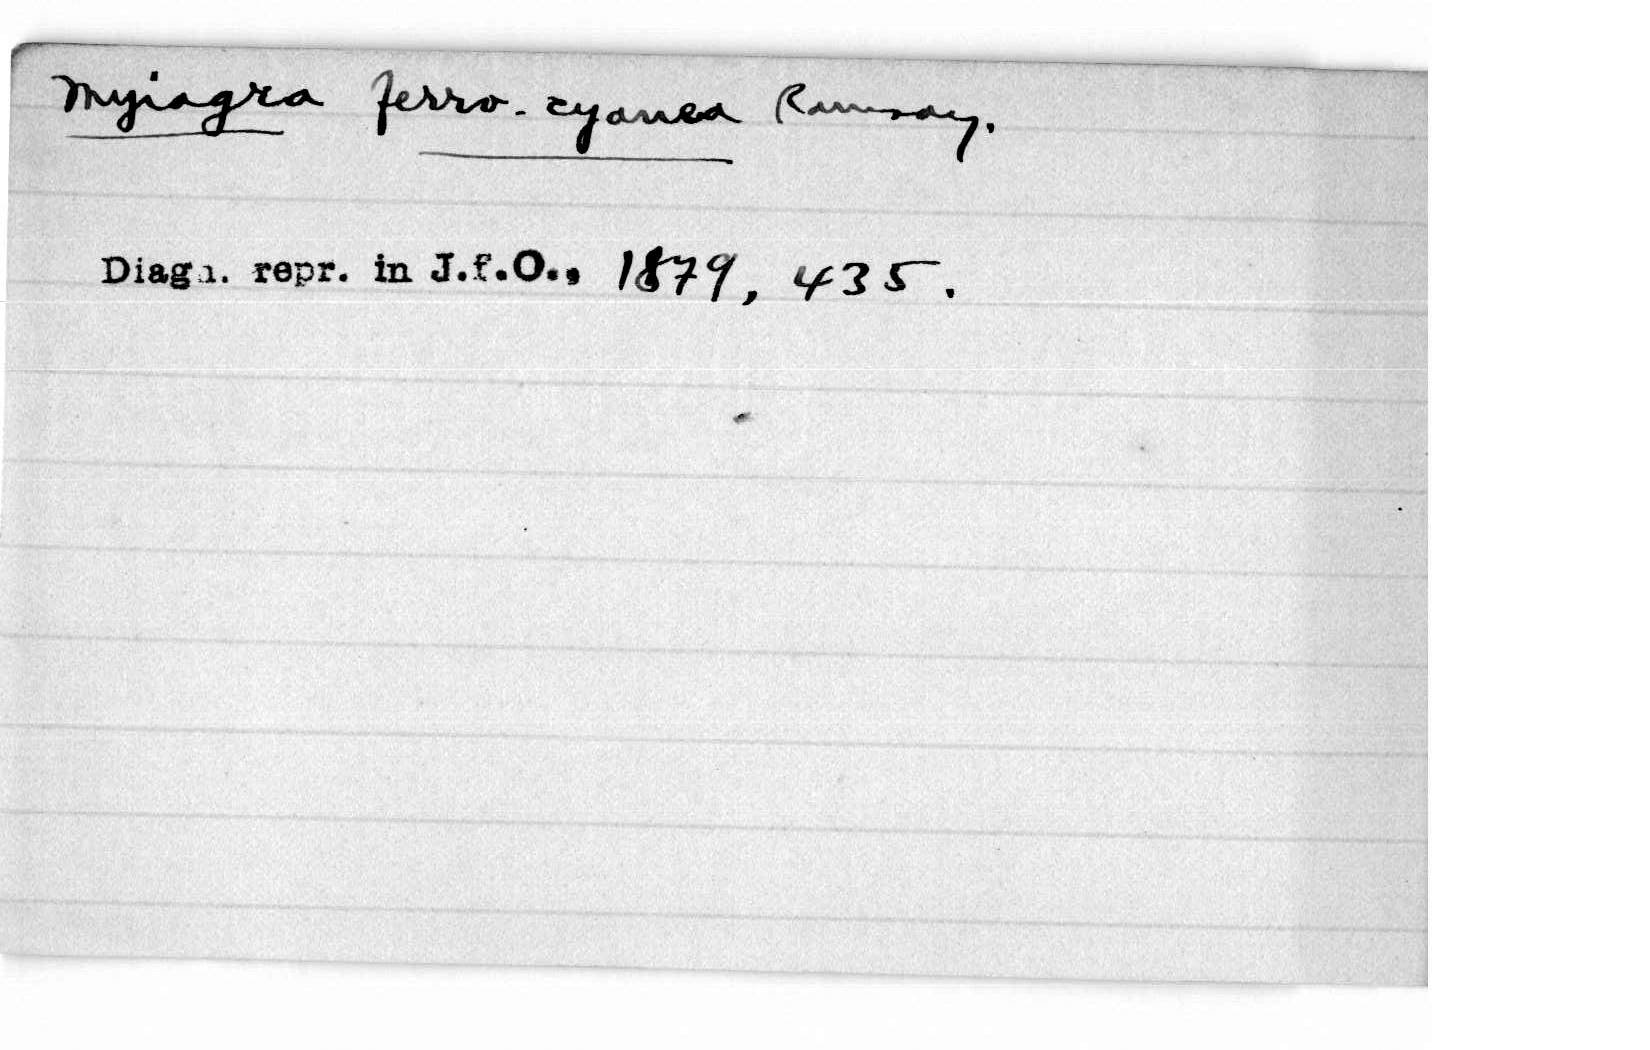 Myiagra ferro-cyanea Ramsay.
Diagn. repr. in J.f.O., 1879, 435.